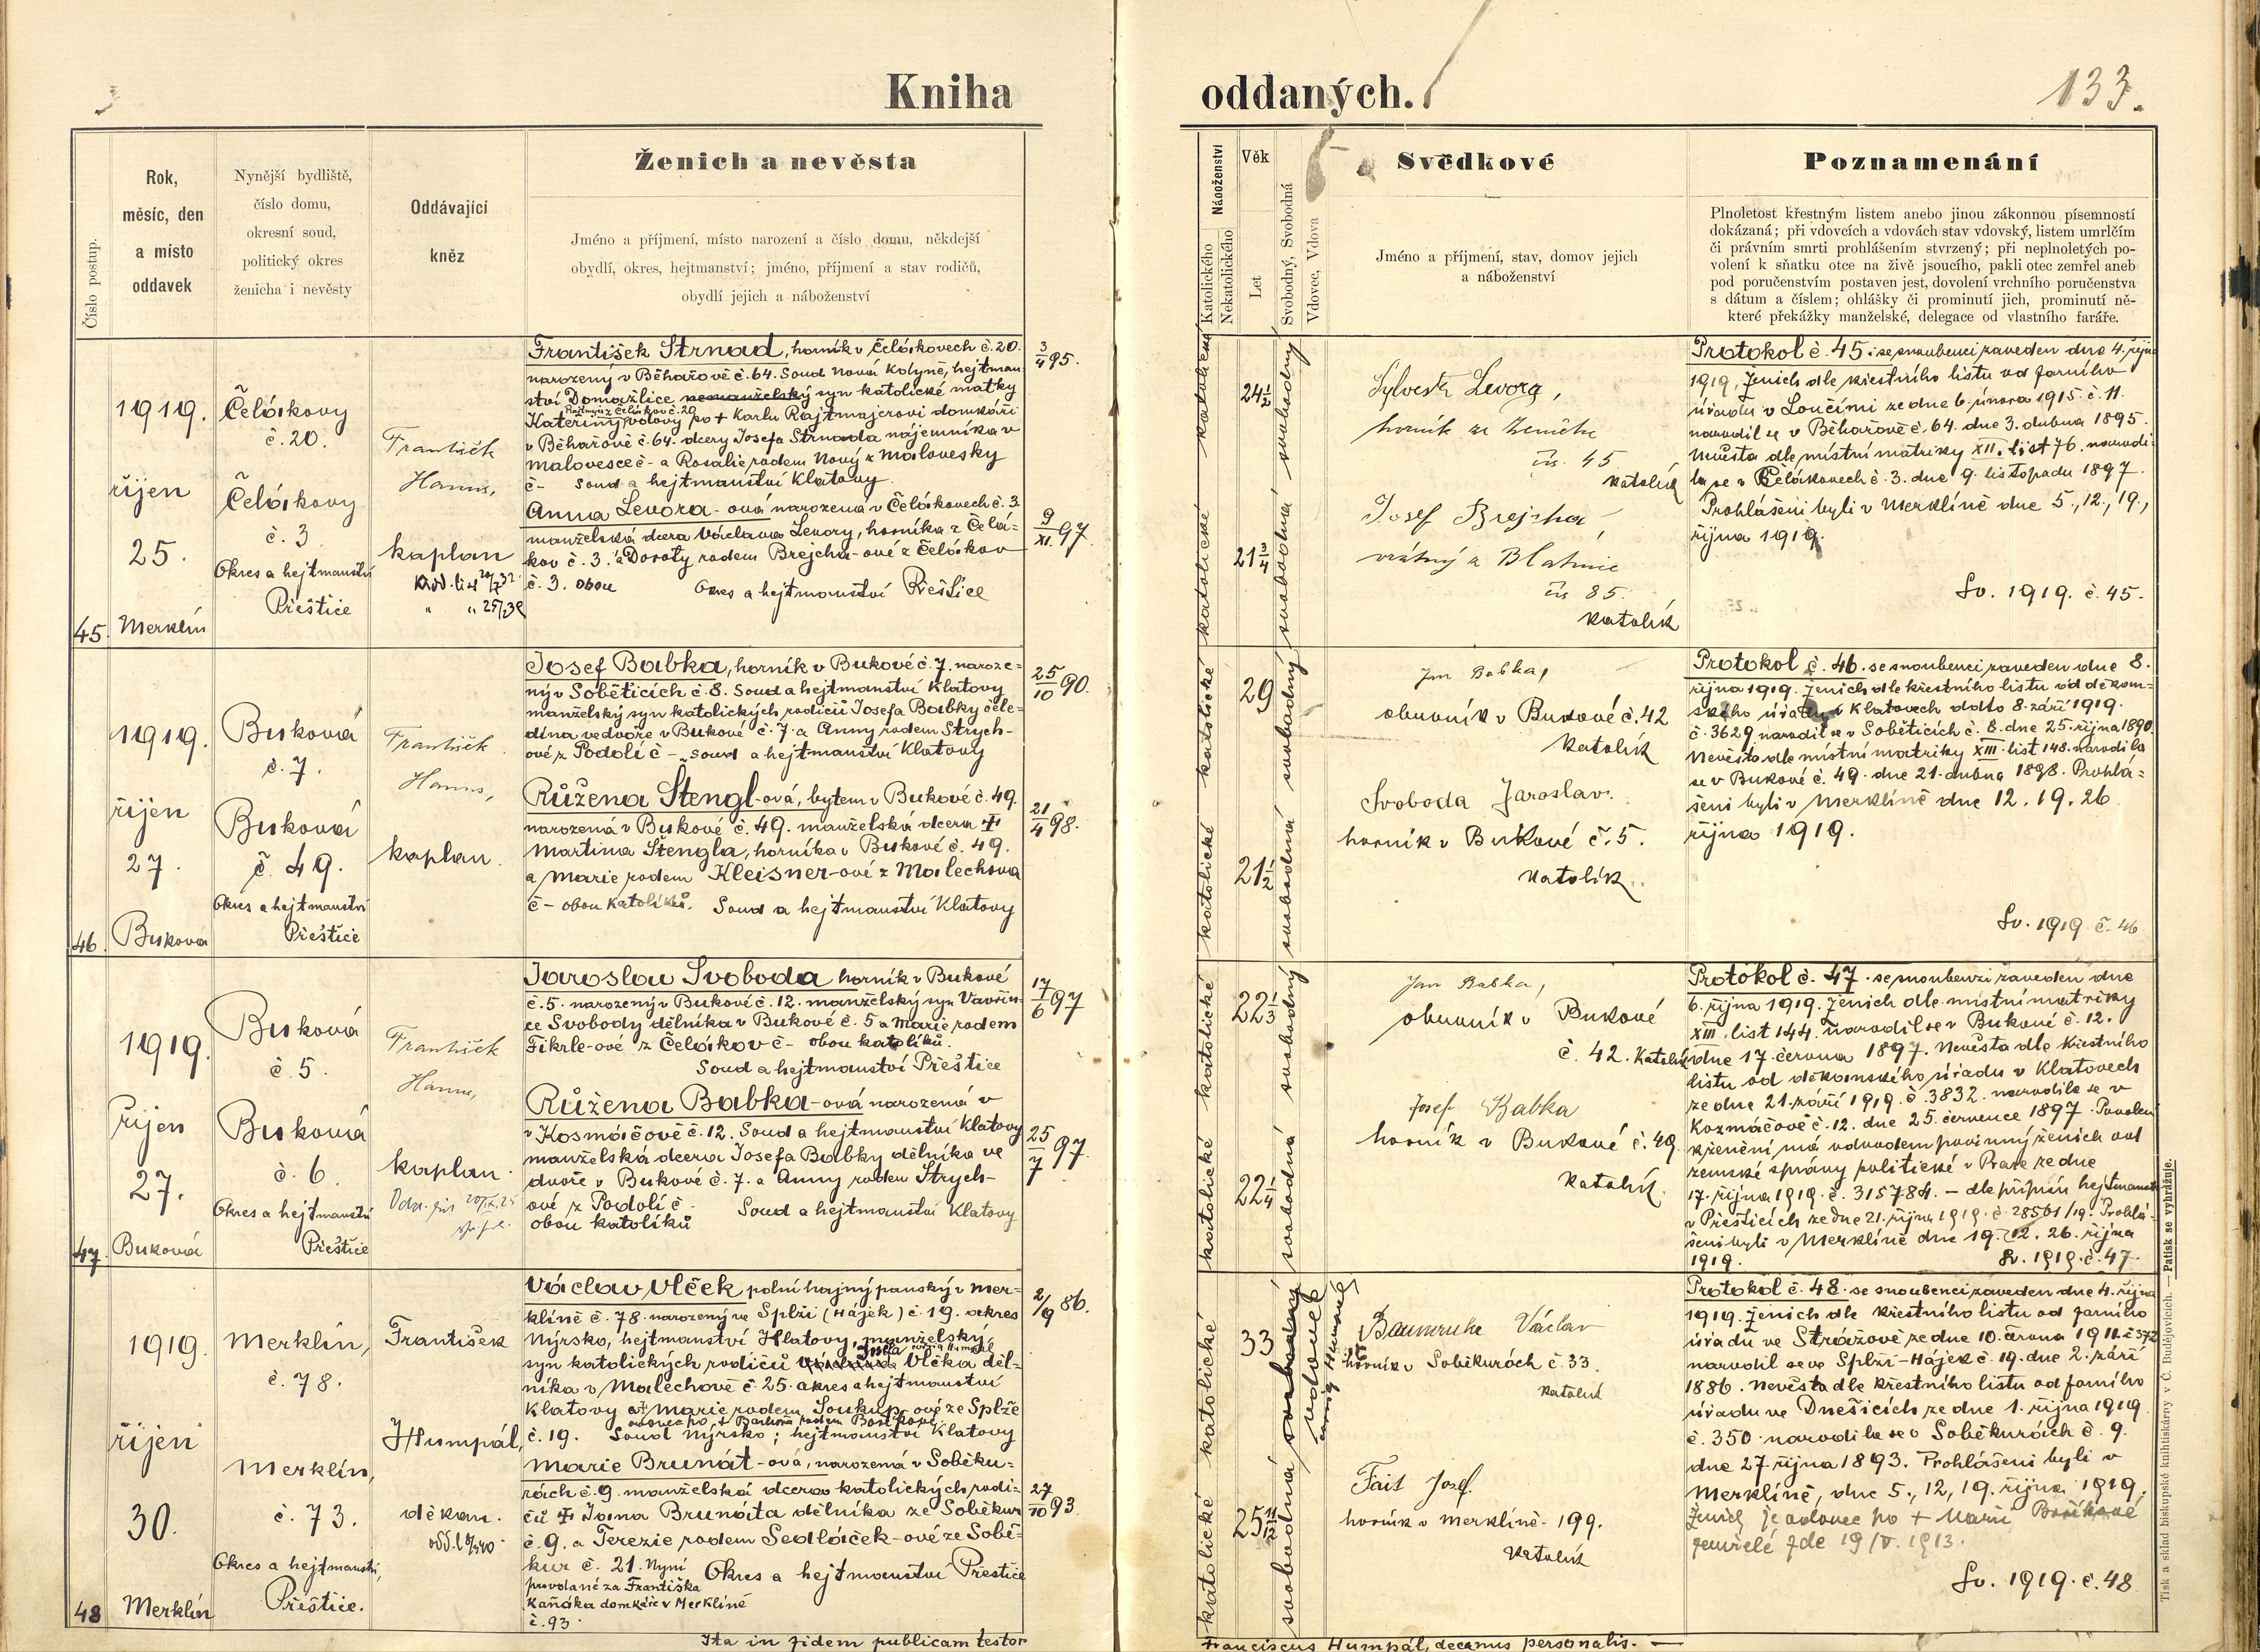 Kniha
oddaných.
133.
Číslo postup.
Rok,
měsíc, den
a místo
oddavek
Nynější bydliště,
číslo domu,
okresní soud,
politický okres
ženicha i nevěsty
Oddávající
kněz
Ženich a nevěsta
Jméno a příjmení, místo narození a číslo domu, někdejší
obydlí, okres, hejtmanství; jméno, příjmení a stav rodičů,
obydlí jejich a náboženství
Náboženství
Katolického
Nekatolického
Věk
Let
Svobodný, Svobodná
Vdovec, Vdova
Svědkové
Jméno a příjmení, stav, domov jejich
a náboženství
Poznamenání
Plnoletost křestným listem anebo jinou zákonnou písemností
dokázaná; při vdovcích a vdovách stav vdovský, listem umrlčím
či právním smrti prohlášením stvrzený; při neplnoletých po-
volení k sňatku otce na živě jsoucího, pakli otec zemřel aneb
pod poručenstvím postaven jest, dovolení vrchního poručenstva
s dátum a číslem; ohlášky či prominutí jich, prominutí ně-
které překážky manželské, delegace od vlastního faráře.
45.
1919.
říjen
25.
Merklín
Čelákovy
č. 20.
Čelákovy
č. 3
Okres a hejtmanství
Přeštice
František
Hanus,
kaplan
František Strnad, horník v Čelákovech č. 20.
narozený v Běhařově č. 64. Soud Nová Kdyně, hejtman
ství Domažlice nemanželský syn katolické matky
Kateřiny vdovy po + Karlu Rajtmajerovi domkáři
v Běhařově č. 64. dcery Josefa Strnada nájemníka v
Malovesce č - a Rosalie rodem Nový z Malovesky
č - soud a hejtmanství Klatovy.
3/4 95.
Anna Levora-ová narozená v Čelákovech č. 3.
manželská dcera Václava Levory, horníka z Čelá-
kov č. 3. a Doroty rodem Brejcha-ové z Čelákov
č. 3. obou Okres a hejtmanství Přeštice
9/XI. 97.
katolické katolické
24 1/2
21 3/4
svobodná svobodný
Sylvestr Levora,
horník ze Ženichu
čís. 45
katolík
Josef Brejcha,
vrátný z Blatnic
čís 85.
katolík
Protokol č. 45. se snoubenci zaveden dne 4. říjn
1919. Ženich dle křestního listu od farního
úřadu v Loučími ze dne 6. února 1915. č. 11.
narodil se v Běhařově č. 64. dne 3. dubna 1895.
Nevěsta dle místní matriky XII. list 76. narodi-
la se v Čelákovech č. 3. dne 9. listopadu 1897.
Prohlášeni byli v Merklíně dne 5., 12., 19.,
října 1919.
Sv. 1919. č. 45.
46.
1919.
říjen
27.
Buková
Buková
č. 7.
Buková
č. 49.
Okres a hejtmanství
Přeštice
František
Hanus,
kaplan.
Josef Babka, horník v Bukové č. 7. naroze-
ný v Soběticích č. 8. Soud a hejtmanství Klatovy
manželský syn katolických rodičů Josefa Babky čele-
dína ve dvoře v Bukové č. 7. a Anny rodem Strych-
ové z Podolí č - soud a hejtmanství Klatovy
25/10 90.
Růžena Štengl-ová, bytem v Bukové č. 49.
narozená v Bukové č. 49. manželská dcera +
Martina Štengla, horníka v Bukové č. 49.
a Marie rodem Kleisner-ové z Malechova
č - obou katolíků. Soud a hejtmanství Klatovy
21/4 98.
katolické katolické
29
21 1/2
svobodná svobodný
Jan Babka,
obuvník v Bukové č. 42
katolík
Svoboda Jaroslav.
horník v Bukové č. 5.
katolík.
Protokol č. 46. se snoubenci zaveden dne 8.
října 1919. Ženich dle křestního listu od děkan-
ského úřadu v Klatovech ddto 8. září 1919.
č. 3629 narodil se v Soběticích č. 8. dne 25. října 1890.
Nevěsta dle místní matriky XIII. list 148. narodila
se v Bukové č. 49. dne 21. dubna 1898. Prohlá-
šeni byli v Merklíně dne 12. 19. 26.
října 1919.
Sv. 1919. č. 46
47.
1919.
Říjen
27.
Buková
Buková
č. 5.
Buková
č. 6.
Okres a hejtmanství
Přeštice
František
Hanus,
kaplan.
Jaroslav Svoboda horník v Bukové
č. 5. narozený v Bukové č. 12. manželský syn Vavřin-
ce Svobody dělníka v Bukové č. 5 a Marie rodem
Fikrle-ové z Čelákov č - obou katolíků.
Soud a hejtmanství Přeštice
17/6 97
Růžena Babka-ová narozená v
v Kosmáčově č. 12. Soud a hejtmanství Klatovy
manželská dcera Josefa Babky dělníka ve
dvoře v Bukové č. 7. a Anny rodem Strych-
ové z Podolí č - Soud a hejtmanství Klatovy
obou katolíků
25/7 97.
katolické katolické
22 1/3
22 1/4
svobodná svobodný
Jan Babka,
obuvník v Bukové
č. 42. katolík
Josef Babka
horník v Bukové č. 49.
katolík.
Protokol č. 47. se snoubenci zaveden dne
6. října 1919. Ženich dle místní matriky
XIII. list 144. narodil se v Bukové č. 12.
dne 17. června 1897. Nevěsta dle křestního
listu od děkanského úřadu v Klatovech
ze dne 21. září 1919. č. 3832. narodila se v
Kozmáčově č. 12. dne 25. července 1897. Povolení
k ženění má odvodem povinný ženich od
zemské správy politické v Praze ze dne
17. října 1919. č. 315784. - dle přípisu hejtmanst
v Přešticích ze dne 21. října 1919. č. 28561/19. Prohlá-
šeni byli v Merklíně dne 19. 12. 26. října
1919. Sv. 1919. č. 47.
48
1919.
říjen
30.
Merklín
Merklín,
č. 78.
Merklín,
č. 73.
Okres a hejtmanství,
Přeštice.
František
Humpál,
děkan.
Václav Vlček polní hajný panský v Mer-
klíně č. 78. narozený ve Splži (Hájek) č. 19. okres
Nýrsko, hejtmanství Klatovy, manželský
syn katolických rodičů Josefa Vlčka děl-
níka v Malechově č. 25. okres a hejtmanství
Klatovy a + Marie rodem Soukup-ové ze Splže
č. 19. Soud Nýrsko; hejtmanství Klatovy
2/9 86.
Marie Brunát-ová, narozená v Soběku-
rách č. 9. manželská dcera katolických rodi-
čů + Jana Brunáta dělníka ze Soběkur
č. 9. a Terezie rodem Sedláček-ové ze Sobě-
kur č. 21. Nyní Okres a hejtmanství Přeštice
provdané za Františka
Kaňáka domkáře v Merklíně
č. 93.
27/10 93.
katolické katolické
33
25
svobodná svobodný
vdovec
Baumruke Václav
horník v Soběkurách č. 33.
katolík
Fait Josef.
horník v Merklíně - 199.
katolík
Protokol č. 48. se snoubenci zaveden dne 4. října
1919. Ženich dle křestního listu od farního
úřadu ve Strážově ze dne 10. února 1911. č 372
narodil se ve Splži - Hájek č. 19. dne 2. září
1886. Nevěsta dle křestního listu od farního
úřadu ve Dnešicích ze dne 1. října 1919.
č. 350 narodila se v Soběkurách č. 9.
dne 27. října 1893. Prohlášeni byli v
Merklíně, dne 5., 12, 19. října 1919.
Ženich je vdovec po + Marii
zemřelé zde 19/V. 1913.
Sv. 1919. č. 48
Ita in fidem publicam testor
Franciscus Humpál, decanus personalis. —
Tisk a sklad biskupské knihtiskárny v Č. Budějovicích. — Patisk se vyhražuje.